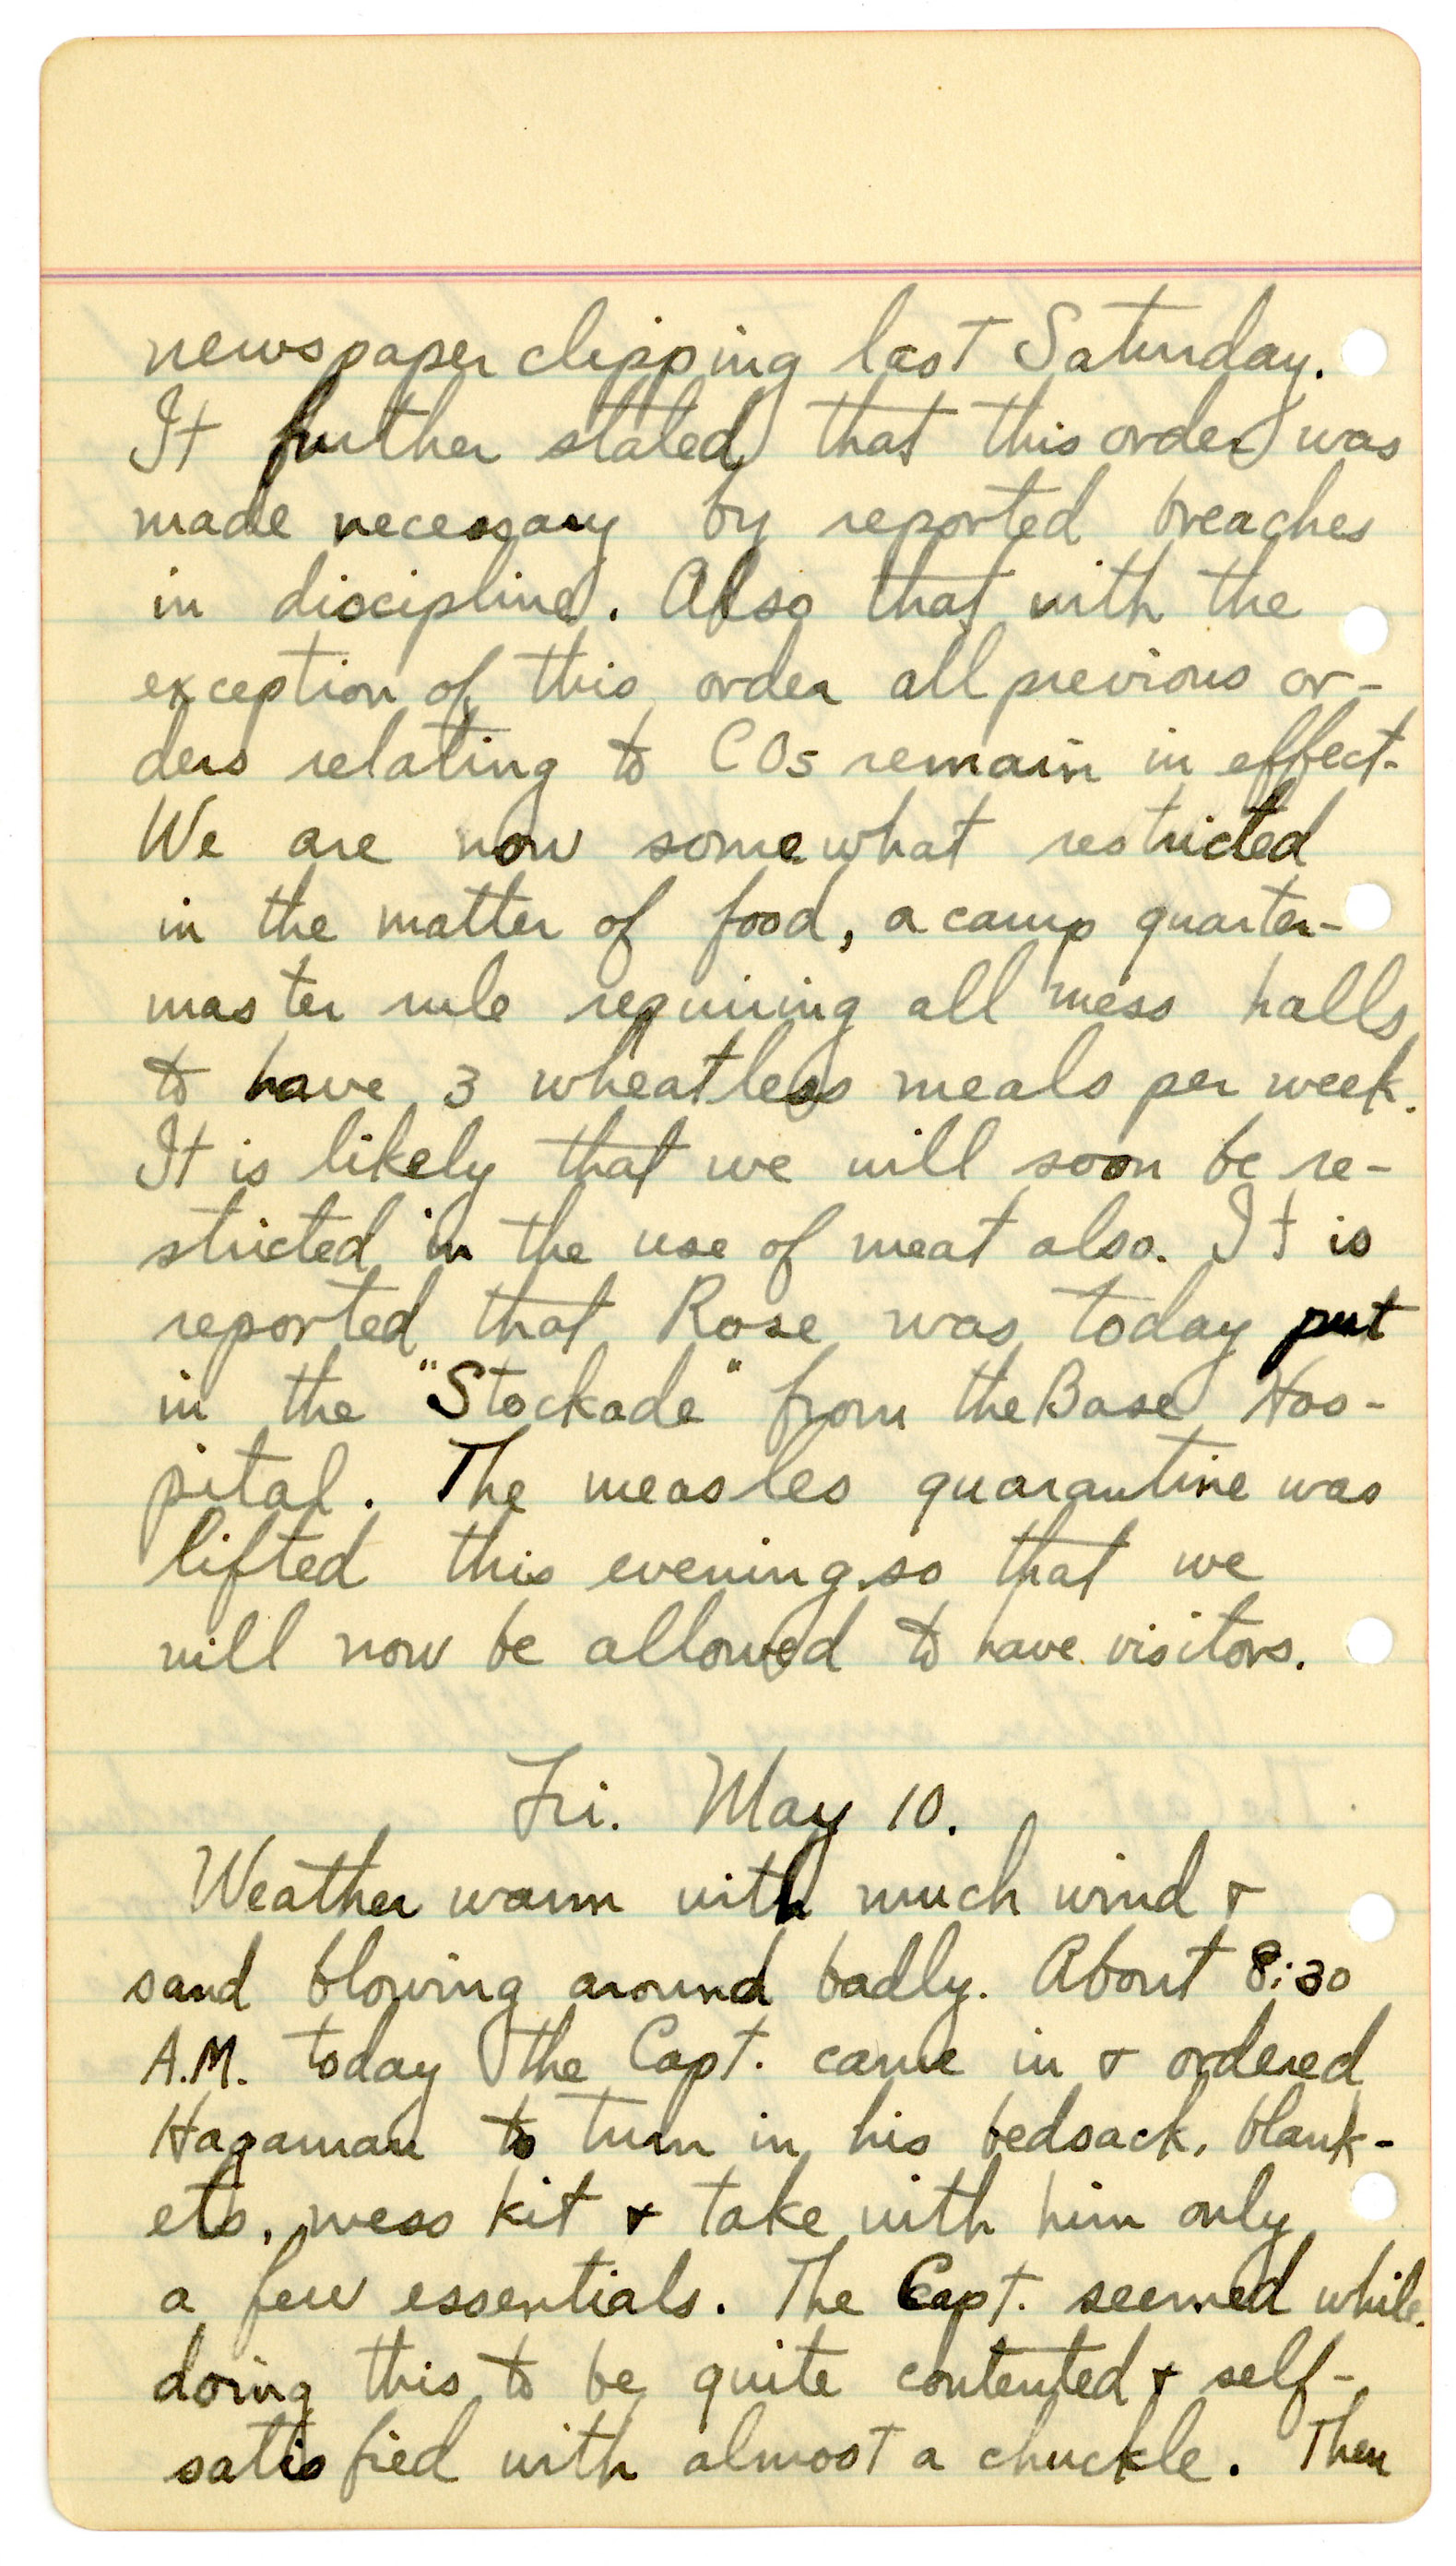 newspaper clipping last Saturday.
It further stated that this order was
made necessary by reported breaches
in discipline. Also that with the
exception of this order all previous or-
ders relating to COs remain in effect.
We are now somewhat restricted
in the matter of food, a camp quarter-
master rule requiring all mess halls
to have 3 wheatless meals per week.
It is likely that we will soon be re-
stricted in the use of meat also. It is
reported that Rose was today put
in the "Stockade" from the Base Hos-
pital. The measles quarantine was
lifted this evening so that we
will now be allowed to have visitors.
Fri. May 10.
Weather warm with much wind &
sand blowing around badly. About 8:30
A.M. today the Capt. came in & ordered
Hagaman to turn in his bedsack, blank-
ets, mess kit & take with him only
a few essentials. The Capt. seemed while
doing this to be quite contented & self-
satisfied with almost a chuckle. Then